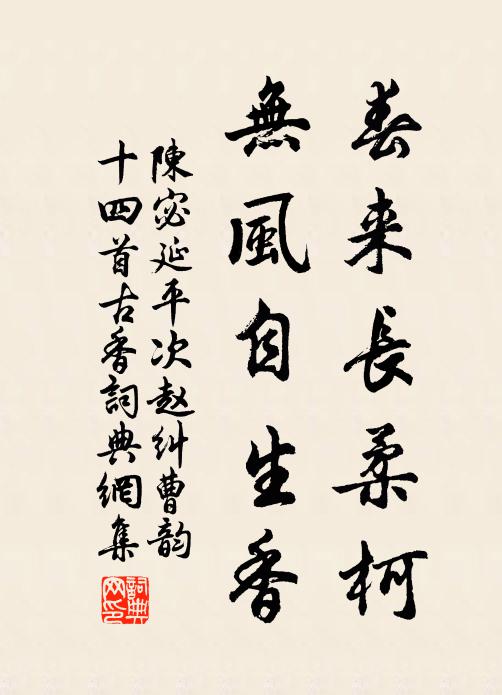 春来長柔柯
無風自生香
陳宓延平次赵纠曹韵
十四首古香詞典網集
詞典網印